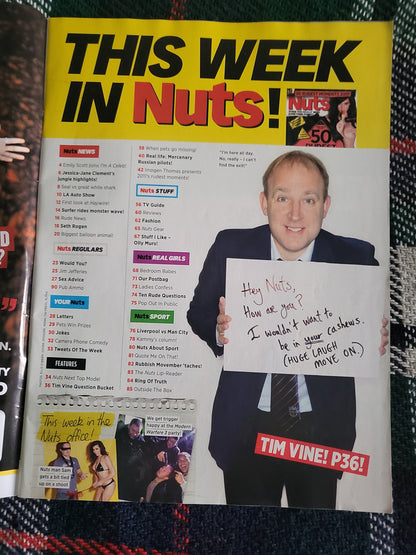 THIS WEEK
IN Nuts!
Nuts NEWS
4 Easily Scott joins I'm A Celeb!
6 Jessica-Jane Clement's
jungle highlights!
8 Seal vs great white shark
10 LA Auto Show
12 First look at Maxwire!
14 Surfer rides monster wave!
16 Rude News
19 Seth Rogen
20 Biggest animal balloon!
Nuts REGULARS
23 Would You?
25 Jim Jefferies
27 Sex Advice
90 Pub Ammo
YOUR Nuts
28 Letters
29 Pets Win Prizes
30 Jokes
32 Camera Phone Comedy
33 Tweets Of The Week
FEATURES
34 Nuts Next Top Model
36 Tim Vine Question Bucket
38 When pets go missing!
40 Real life: Mercenary
Russian pilots!
42 Imogen Thomas presents
2011's rudest moments!
Nuts STUFF
56 TV Guide
60 Reviews
62 Fashion
65 Nuts Gear
67 Stuff I Like –
Olly Murs!
Nuts REAL GIRLS
68 Bedroom Babes
71 Our Postbag
73 Ladies Confess
74 Ten Rude Questions
75 Pop Out in Public
Nuts SPORT
76 Liverpool vs Man City
78 Kammy's column!
80 Nuts About Sport
81 Quote Me On That!
82 Rubbish Movember 'taches!
83 The Nuts Lip-Reader
84 Ring Of Truth
85 Outside The Box
"I'm here all day.
No, really – I can't
find the exit!"
Nuts
50
Hey Nuts,
How are you?
I wouldn't want to
be in your cashews.
(HUGE LAUGH
MOVE ON.)
TIM VINE! P36!
This week in the
Nuts office!
Nuts man Sam
gets a bit tied
up on a shoot
We get trigger
happy at the Modern
Warfare 3 party!